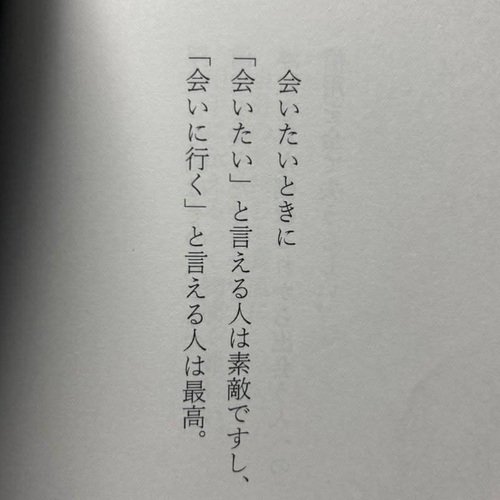 会いたいときに
「会いたい」と言える人は素敵ですし、
「会いに行く」と言える人は最高。